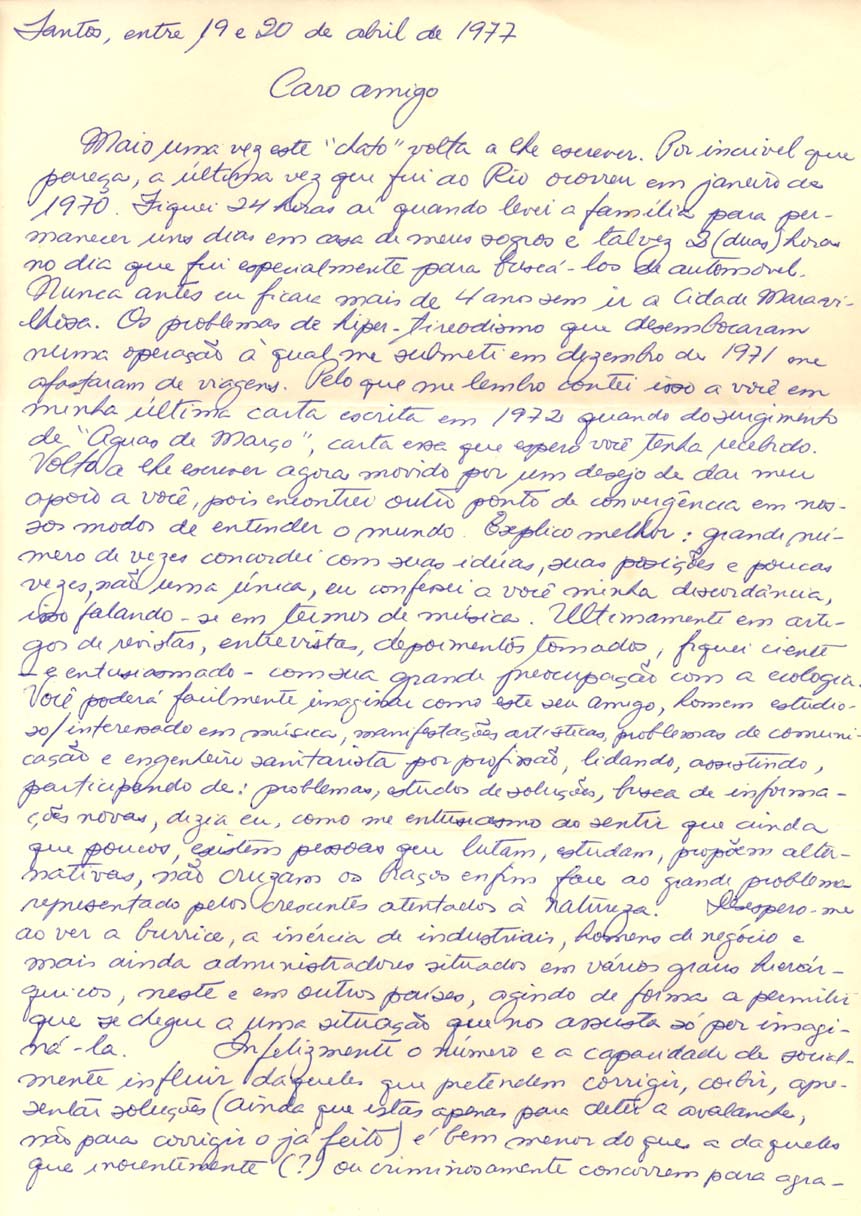 Santos, entre 19 e 20 de abril de 1977
Caro amigo
Mais uma vez este "chato" volta a lhe escrever. Por incrível que
pareça, a última vez que fui ao Rio ocorreu em janeiro de
1970. Fiquei 24 horas aí quando levei a família para per-
manecer uns dias em casa de meus sogros e talvez 2 (duas) horas
no dia que fui especialmente para buscá-los de automóvel.
Nunca antes eu ficara mais de 4 anos sem ir a Cidade Maravi-
lhosa. Os problemas de hiper-tireodismo que desembocaram
numa operação à qual me submeti em dezembro de 1971 me
afastaram de viagens. Pelo que me lembro contei isso a você em
minha última carta escrita em 1972 quando do surgimento
de "Aguas de Março", carta essa que espero você tenha recebido.
Volto a lhe escrever agora movido por um desejo de dar meu
apoio a você, pois encontrei outro ponto de convergência em nos-
sos modos de entender o mundo. Explico melhor: grande nú-
mero de vezes concordei com suas idéias, suas posições e poucas
vezes, não uma única, eu confessei a você minha discordância,
isso falando-se em termos de música. Ultimamente em arti-
gos de revistas, entrevistas, depoimentos tomados, fiquei ciente
- e entusiasmado - com sua grande preocupação com a ecologia.
Você poderá facilmente imaginar como este seu amigo, homem estudio-
so/interessado em música, manifestações artísticas, problemas de comuni-
cação e engenheiro sanitarista por profissão, lidando, assistindo,
participando de: problemas, estudos de soluções, busca de informa-
ções novas, dizia eu, como me entusiasmo ao sentir que ainda
que poucos, existem pessoas que lutam, estudam, propõem alter-
nativas, não cruzam os braços enfim face ao grande problema
representado pelos crescentes atentados à natureza. Desespero-me
ao ver a burrice, a inércia de industriais, homens de negócio e
mais ainda administradores situados em vários graus hierár-
quicos, neste e em outros países, agindo de forma a permitir
que se chegue a uma situação que nos assusta só por imagi-
ná-la. Infelizmente o número e a capacidade de social-
mente influir daqueles que pretendem corrigir, coibir, apre-
sentar soluções (ainda que estas apenas para deter a avalanche,
não para corrigir o já feito) é bem menor do que a daqueles
que inocentemente (?) ou criminosamente concorrem para agra-